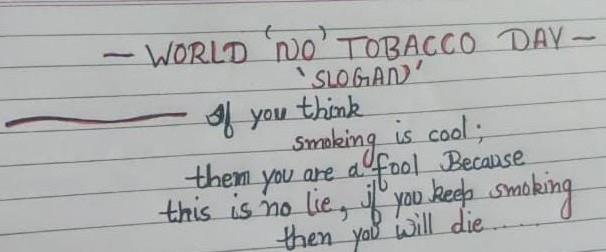 - WORLD 'NO' TOBACCO DAY -
'SLOGAN'
If you think
smoking is cool;
them you are a fool Because
this is no lie, if you keep smoking
then you will die.....